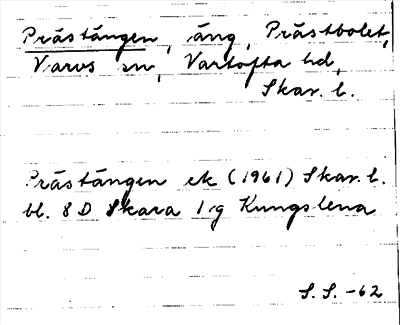 Prästängen, äng, Prästbolet,
Varvs sn, Vartofta hd,
Skar. l.
Prästängen ek (1961) Skar. l.
bl. 8 D Skara 1g Kungslena
S. S. -62